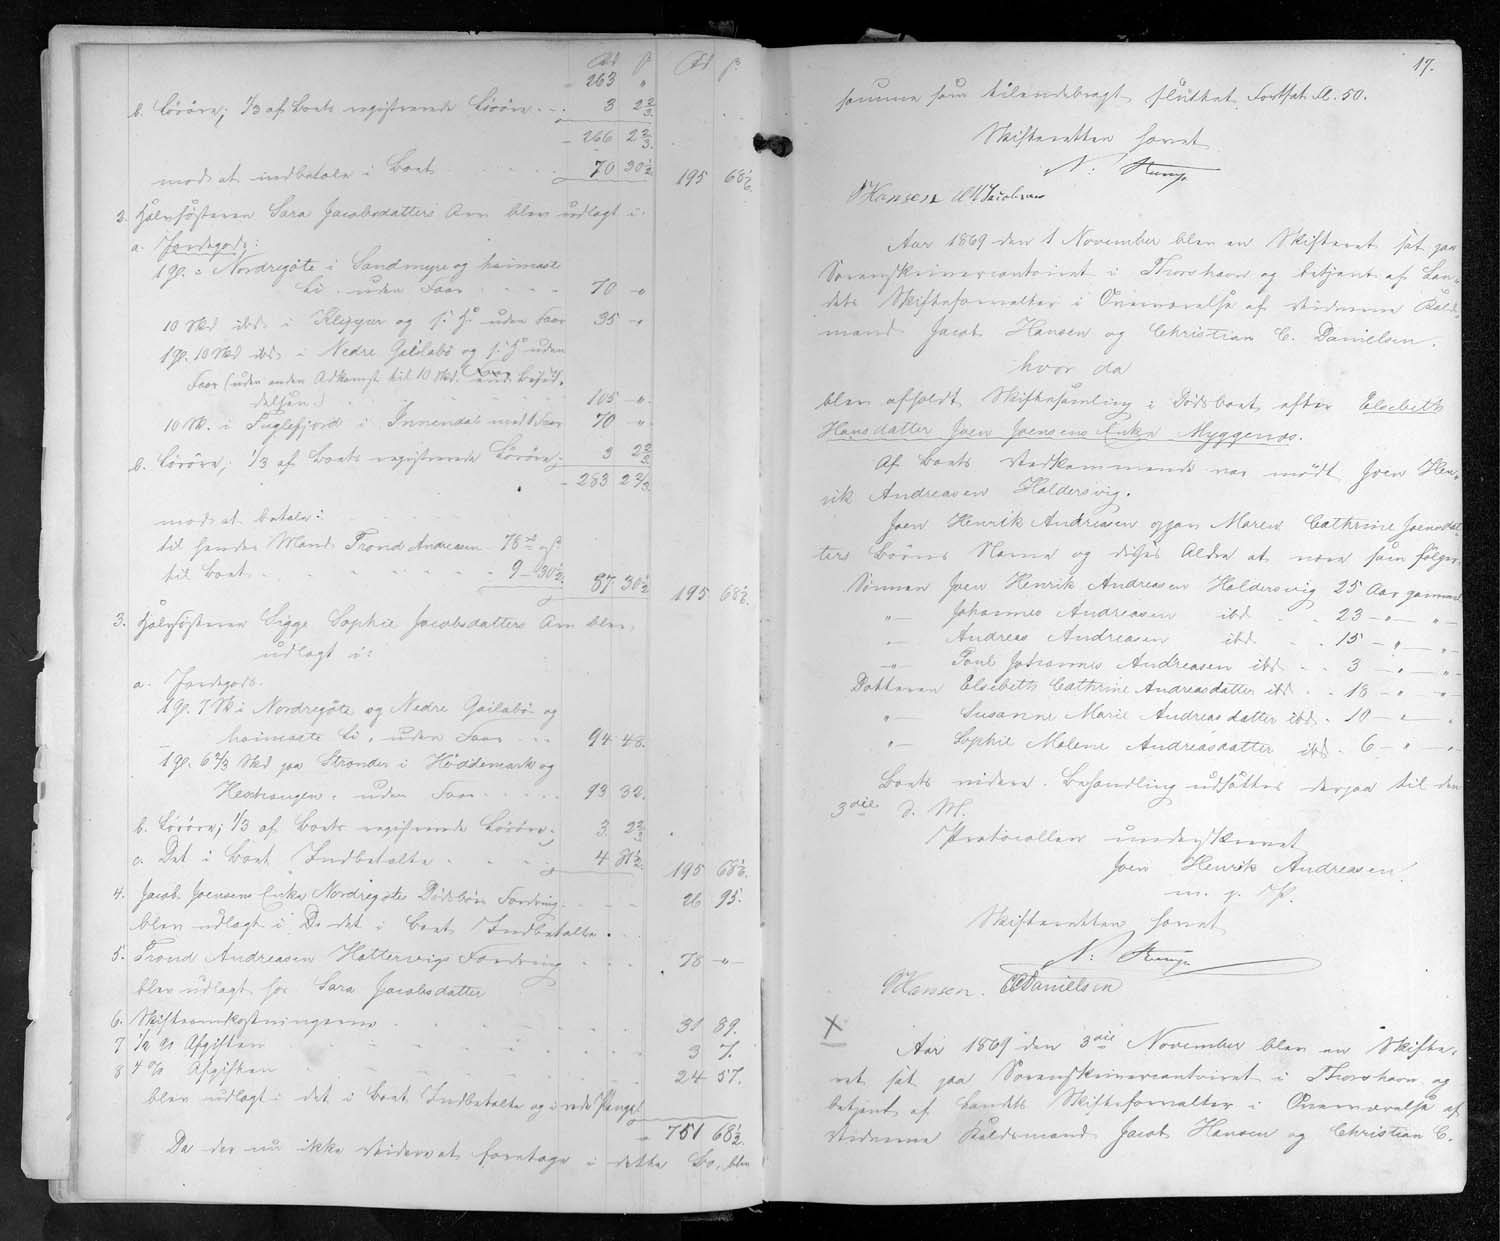 Rd ß Rd ß
263 "
b. Løsøre; 1/3 af Boets registrerede Løsøre. - 3 2 2/3.
- 266 2 2/3.
mod at indbetale i Boet 70 30 1/2 195 68 1/6.
2. Halvsøsteren Sara Jacobsdatters Arv blev udlagt i:
a. Jordegods:
1 gl. = Nordregøte i Sandmyre og heimaste
Li. uden Faar 70 - "
10 Skd ibd. i Klippur og s. H. uden Faar 35 - "
1 gl. 10 Skd ibd. i Nedre Gailabø og s. H. uden
Faar (uden anden Adkomst til 10 Skd. end Besid-
delsen.) 105 - "
10 Sk. i Fuglefjord i Innendal med 1 Faar 70 - "
b. Løsøre; 1/3 af Boets registrerede Løsøre; 3 2 2/3
- 283 2 2/3
mod at betale:
til hendes Mand Trond Andreasen - 78 rd " ß
til Boet 9 - 30 1/2 87 30 1/2 195 68 1/6.
3. Halvsøsteren Sigge Sophie Jacobsdatters Arv blev
udlagt i:
a. Jordegods.
1 gl. 7 Sk i Nordregøte og Nedre Gailabø og
heimaste Li. uden Faar 94 48.
1 gl. 6 2/3 Skd paa Strender i Høddemark og
uden Faar 93 32.
b. Løsøre; 1/3 af Boets registrerede Løsøre. 3. 2 2/3
c. Det i Boet Indbetalte 4 81 1/2. 195 68 1/6.
4. Jacob Joensens Enke Nordregøtes Dødsbøs Fordring 26 95.
blev udlagt i D: det i Boet Indbetalte.
5. Trond Andreasen Hattervigs Fordring 78 - " -
blev udlagt hos Sara Jacobsdatter
6. Skifteomkostningerne 31 89.
7 1/2 % Afgiften 3 7.
8 4 % Afgiften 24 57.
blev udlagt i det i Boet Indbetalte og i rede Penge!
- 751 68 1/2.
Da der nu ikke videre at foretage i dette Bo, blev
17.
samme som tilendebragt sluttet. Fortsat Fl. 50.
Skifteretten hævet
N:
JHansen JM Jacobsen
Aar 1869 den 1 November blev en Skifteret sat paa
Sorenskrivercontoiret i Thorshavn og betjent af Lan-
dets Skifteforvalter i Overværelse af Vidnerne Koldt-
mand Jacob Hansen og Christian C. Danielsen.
hvor da
blev afholdt Skiftesamling i Dødsboet efter Elsebeth
Hansdatter Joen Joensens Enke Myggenæs.
Af Boets Vedkommende var mødt Joen Hen-
rik Andreasen Haldersvig.
Joen Henrik Andreasen opgav Maren Cathrine Joensdat-
ters Børns Navne og disses Alder at være som følger:
Sønnen Joen Henrik Andreasen Haldersvig 25 Aar gammel
" - Johannes Andreasen ibd - - 23 - " - " -
" - Andreas Andreasen ibd. - - 15 - " - " -
" - Poul Johannes Andreasen ibd - - 3 - " - " -
Datteren Elsebeth Cathrine Andreasdatter ibd - - 18 - " - " -
" - Susanne Marie Andreasdatter ibd - 10 - " - " -
" - Sophie Malene Andreasdatter ibd - 6 - " - " -
Boets videre Behandling udsattes derpaa til den
3die d. M.
Protocollen underskrevet
Joen Henrik Andreasen.
m. p. P.
Skifteretten hævet
N:
JHansen. CCDanielsen
X
Aar 1869 den 3die November blev en Skifte-
ret sat paa Sorenskrivercontoiret i Thorshavn og
betjent af Landets Skifteforvalter i Overværelse af
Vidnerne Koldtmand Jacob Hansen og Christian C.